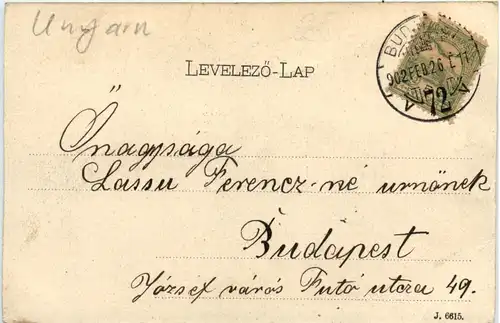 Ungarn
BUDAPEST
902 FEB. 26
V 72 V
LEVELEZŐ-LAP
Őnagysága
Lassu Ferencz-né urnőnek
Budapest
József város Futó utcza 49.
J. 6615.